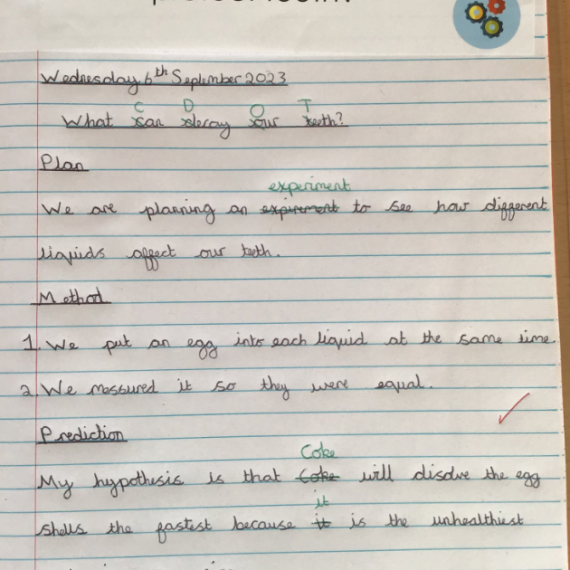 Wednesday 6th September 2023
C D O T
What can decay our teeth?
Plan
experiment
We are planning an expirement to see how different
liquids affect our teeth.
Method
1. We put an egg into each liquid at the same time.
2. We messured it so they were equal.
Prediction
Coke
My hypothesis is that Coke will disolve the egg
it
shells the fastest because it is the unhealthiest